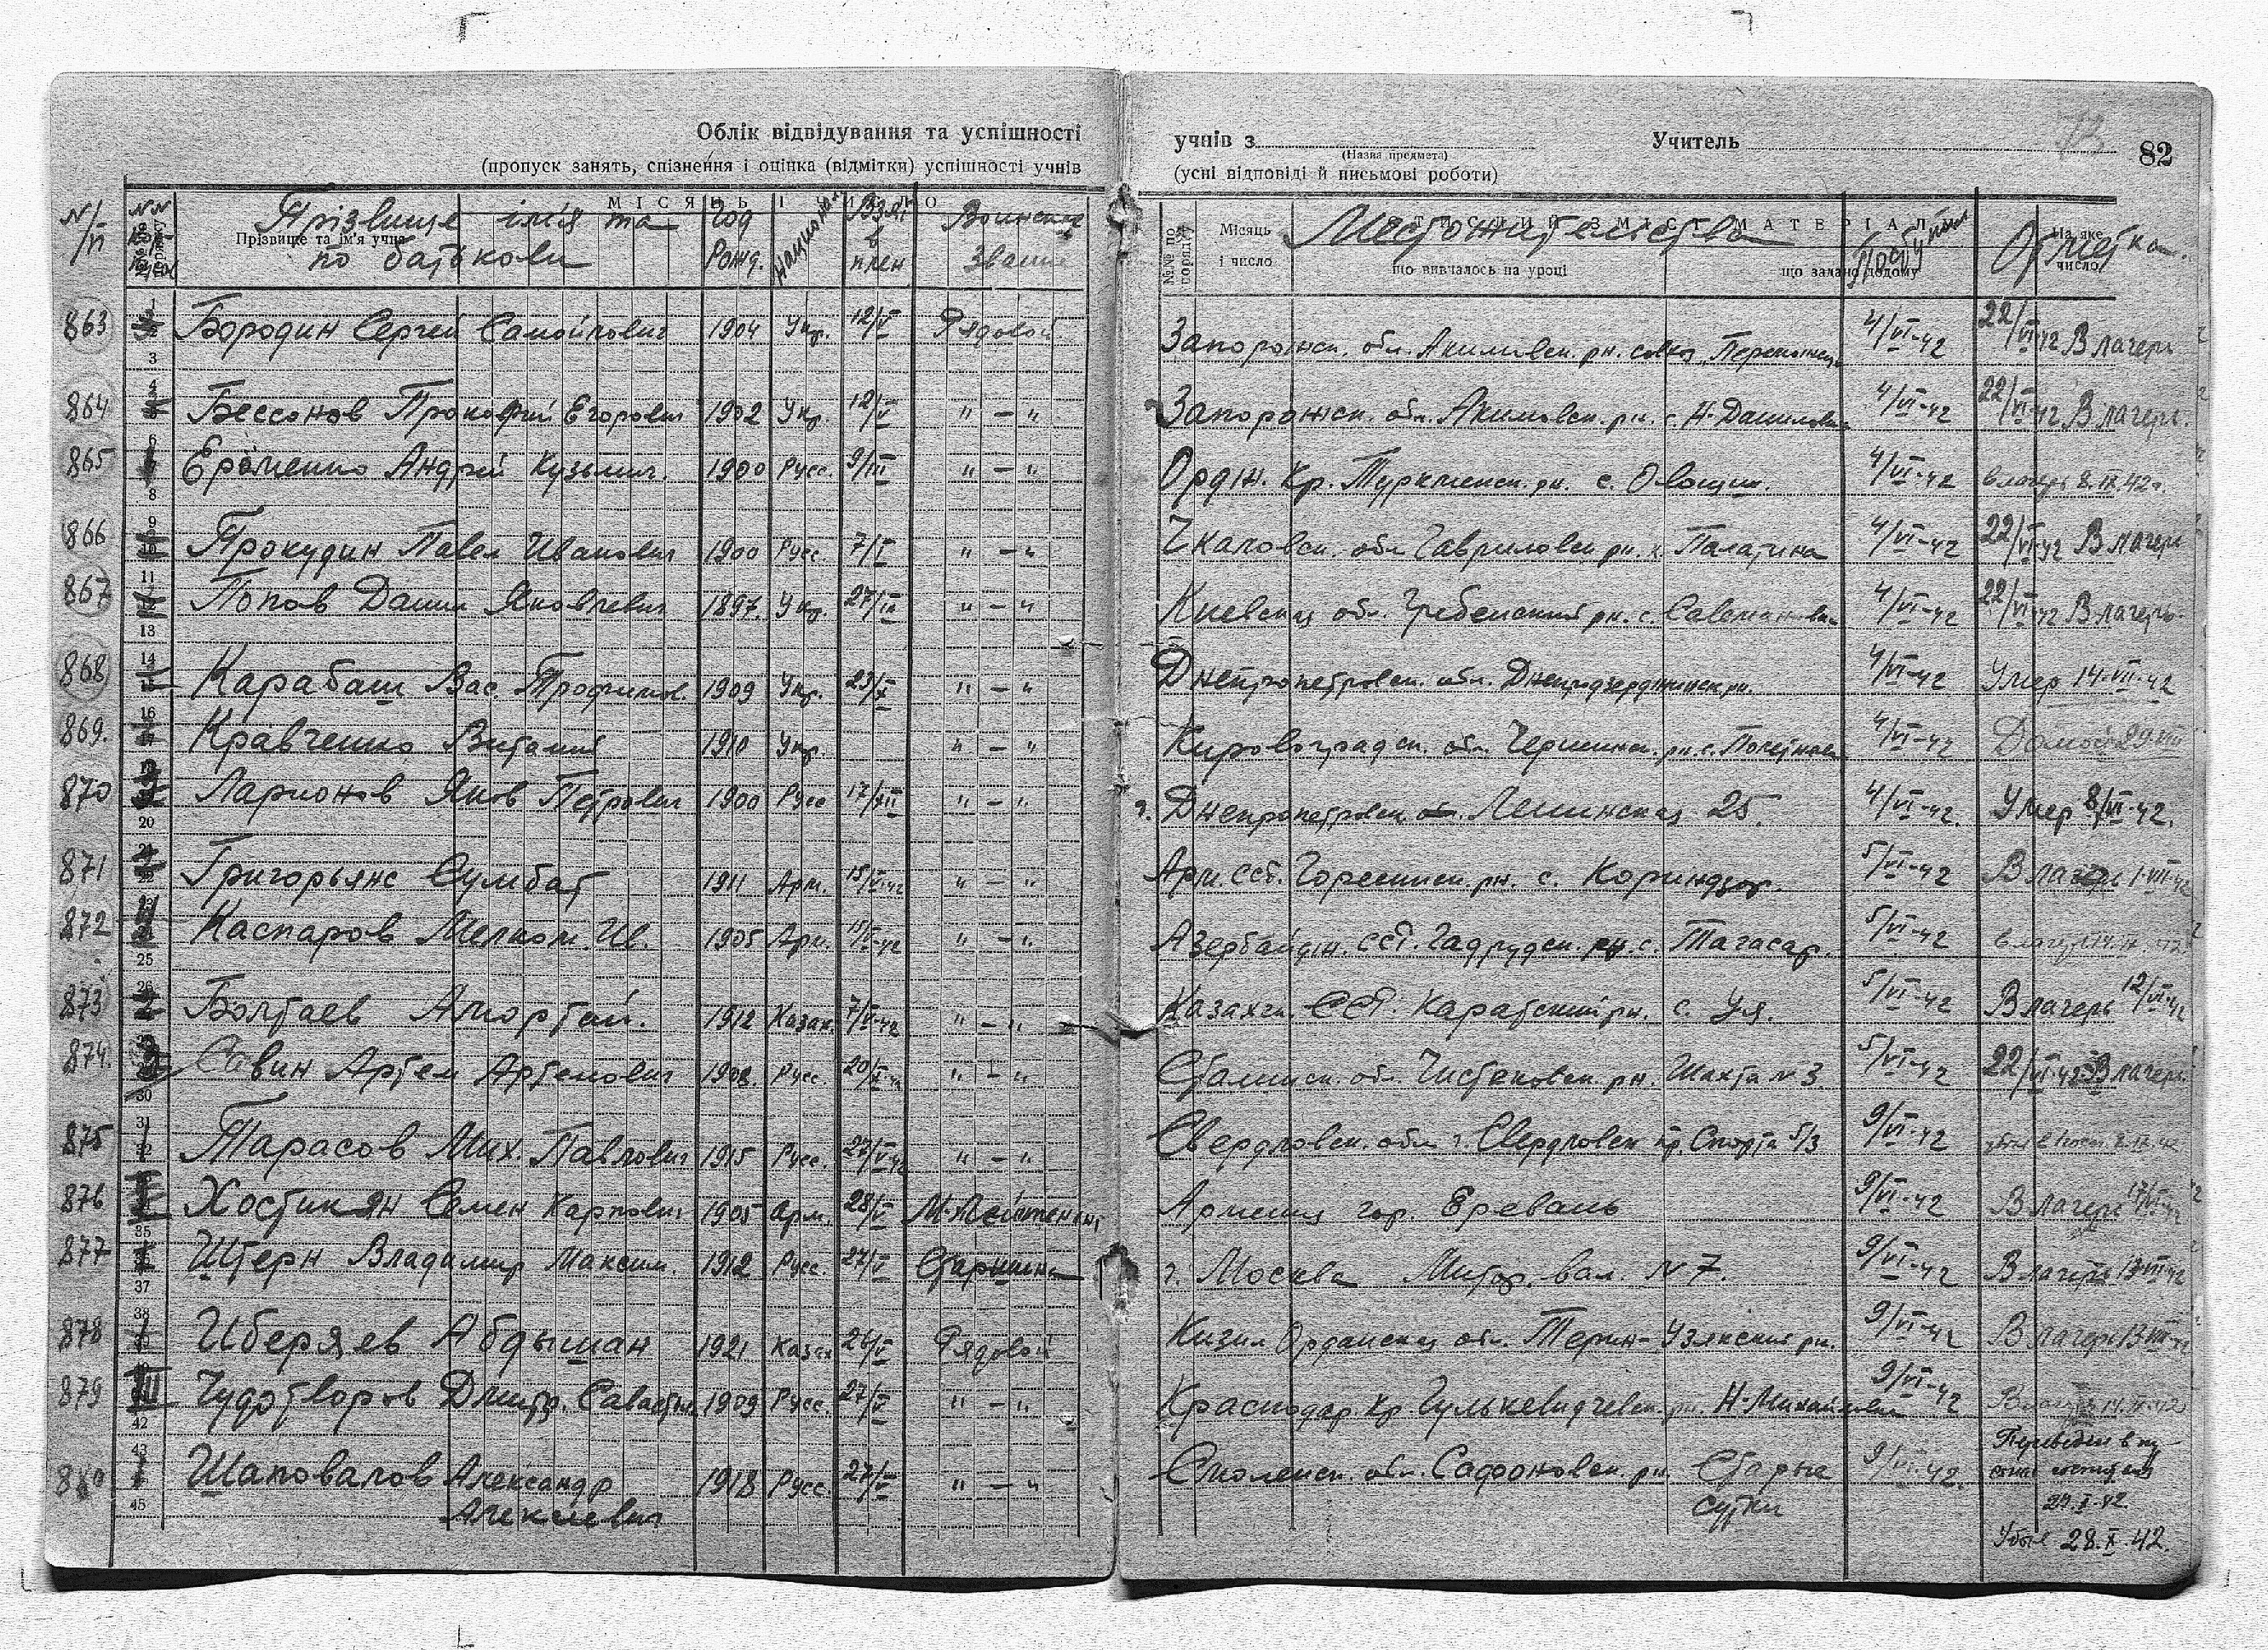 Облік відвідування та успішності
(пропуск занять, спізнення і оцінка (відмітки) успішності учнів
учнів з
(Назва предмета)
Учитель
82
(усні відповіді й письмові роботи)
№/п Прізвище ім'я та по батькови Год Рожд. национал. Взят в плен Воинское звание Местожительства Отметка
Прізвище та ім'я учня
МІСЯЦЬ І ЧИСЛО
№№ по порядку Місяць і число СТИСЛИЙ ЗМІСТ МАТЕРІАЛУ що вивчалось на уроці що задано додому На яке число
863 Бородин Сергей Самойлович 1904 Укр. 12/V Рядовой Запорожск. обл. Акимовск. рн. 4/VI-42 22/VI-42 В лагерь
864 Бессонов Прокофий Егорович 1902 Укр. 12/V " — " Запорожск. обл. Акимовск. рн. с. Н-Даниловка 4/VI-42 22/VI-42 В лагерь.
865 Ерёменко Андрей Кузьмич. 1900 Русс. 9/III " — " Ордж. Кр. Туркменск. рн. с. Овощи. 4/VI-42 в лагерь 8.IX.42г.
866 Прокудин Павел Иванович 1900 Русс. 7/I " — " Чкаловск. обл. Гавриловск рн. Палатина 4/VI-42 22/VI-42 В лагерь
867 Попов Данил Яковлевич 1897. Укр. " — " Киевская обл. Гребенский рн. с. 4/VI-42 22/VI-42 В лагерь.
868 Карабаш Вас. Трофимов. 1909 Укр. 23/X " — " Днепропетровск. обл. Днепродзержинск рн. 4/VI-42 Умер 14-VII-42
869. Кравченко Виталий 1910 Укр. " — " Кировоградск. обл. рн. с. 4/VI-42 Домой 29-VIII
870 Ларионов Яков Петрович 1900 Русс 17/XII " — " г. Днепропетровск Ленинская 25. 4/VI-42. Умер 8/VI-42.
871 Григорьянс Сумбат 1911 Арм. " — " Арм. ССР. Горисинск. рн. с. Кориндзор. 5/VI-42 В лагерь 1-VII-42
872 Каспаров Мелком. Ив. 1905 Арм. " — " Азербайдж. ССР. Гадрудск. рн. с. Тагасар. 5/VI-42 в лагерь
873 Болтаев Амортай. 1912 Казах. 7/V-42 " — " Казахск. ССР. Каратский рн. с. Уя. 5/VI-42 В лагерь 12/VI-42
874. Савин Артем Артемович 1908. Русс. " — " Сталинск. обл. Чистяковск. рн. Шахта №3. 5/VI-42 22/VI-42 В лагерь.
875 Тарасов Мих. Павлович 1915 Русс. 27/V-42 " — " Свердловск. обл. г. Свердловск пр. Спорта 5/3 9/VI-42
876 Хостикян Семен Карпович 1905 арм. 28/V М. Лейтенант Армения гор. Еревань 9/VI-42 В лагерь
877 Штерн Владимир Максим. 1912 Русс. 27/V Старшина г. Москва Митр. вал. №7. 9/VI-42 В лагерь 13-VII-42
878 Иберяев Абдыман 1921 Казах 26/V Рядовой Кизил Ординская обл. Терин-Узякский рн. 9/VI-42 В лагерь
879 Чудотворов Дмитр. Савастьян. 1909 Русс. 27/V " — " Краснодар. Кр. Гулькевичевск. рн. Н-Михайловка 9/VI-42 В лагерь
880 Шаповалов Александр 1918 Русс. 27/V " — " Смоленск. обл. Сафоновск. рн. Старые 9/VI-42. Переведен в
Алексеевич
Сутки
27.X.42.
Убыл 28.X.42.